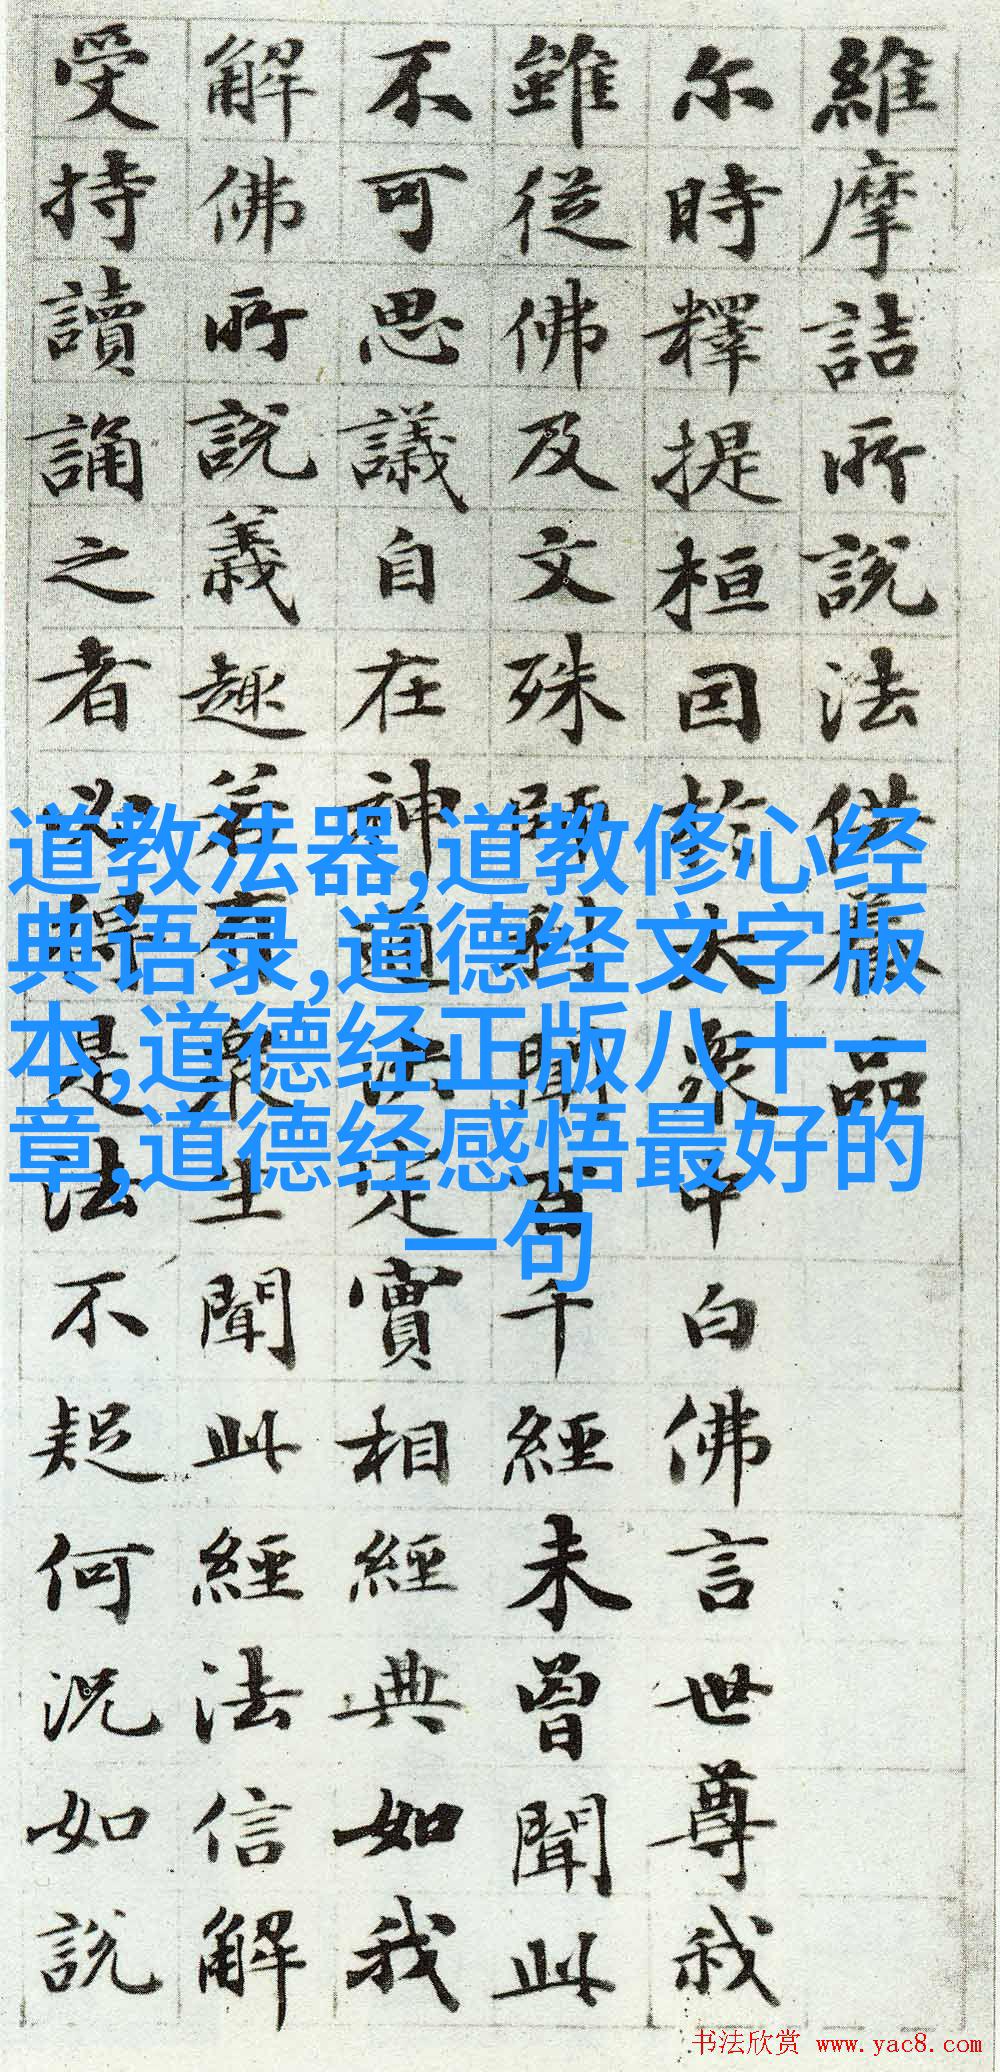 維摩詰所說法供養品
尔時釋提桓因於大衆中白佛言世尊我
雖從佛及文殊師利聞百千經未曾聞此
不可思議自在神通決定實相經典如我
解佛所說義趣若有衆生聞此經法信解
受持讀誦之者必得是法不疑何況如說
道教法器,道教修心经
典语录,道德经文字版
本,道德经正版八十一
章,道德经感悟最好的
一句
书法欣赏 www.yac8.com